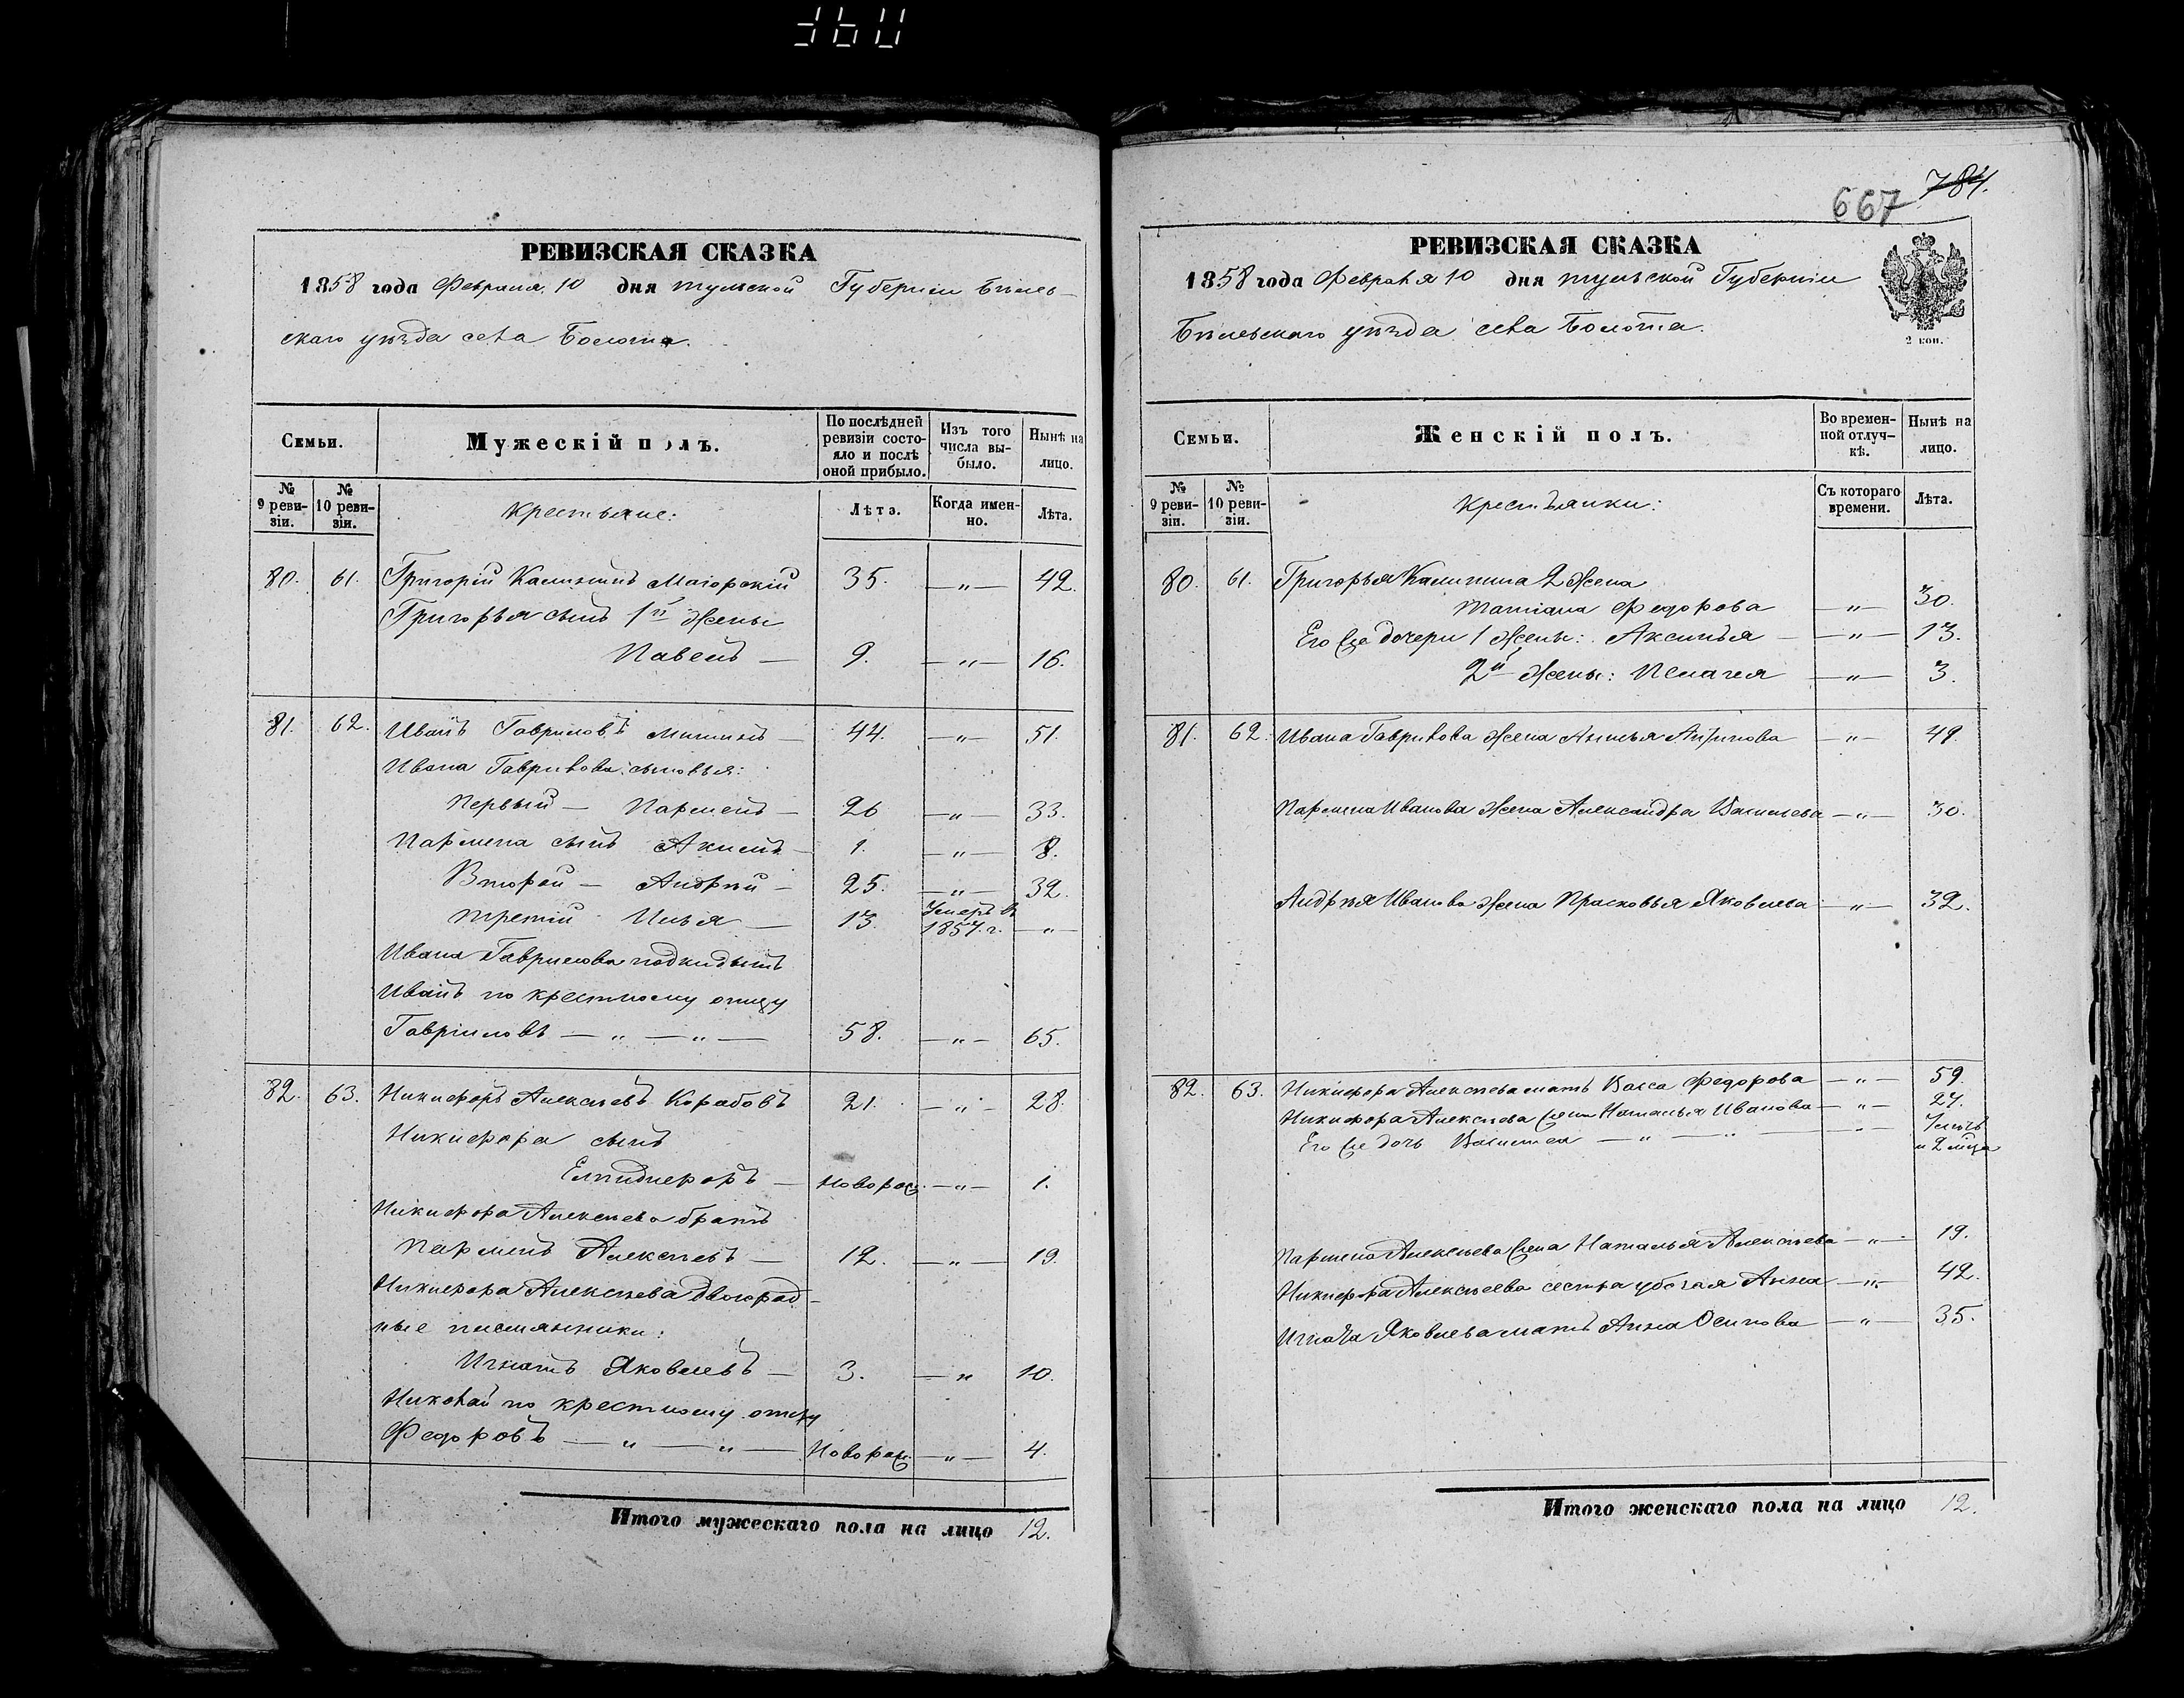 РЕВИЗСКАЯ СКАЗКА
1858 года Февраля 10 дня Тульской Губернiи Бѣлев-
скаго уѣзда села Болота.
Семьи.
Мужескiй полъ.
По послѣдней ревизiи состо-
яло и послѣ оной прибыло.
Изъ того числа вы-
было.
Нынѣ на лицо.
№ 9 реви-
зiи.
№ 10 реви-
зiи.
Крестьяне:
Лѣта.
Когда имен-
но.
Лѣта.
80. 61. Григорiй Калининъ Маiорскiй 35. —„— 42.
Григорья сынъ 1й жены
Павелъ — 9. —„— 16.
81. 62. Иванъ Гавриловъ Мишинъ — 44. —„— 51.
Ивана Гаврилова сыновья:
Первый — Парменъ — 26 —„— 33.
Пармена сынъ Акимъ — 1. —„— 8.
Второй — Андрѣй — 25. —„— 32.
Третiй Илья — 13. Умеръ въ 1857. г. —„—
Ивана Гаврилова подкидышъ
Иванъ по крестному отцу
Гаврiиловъ — „ — „ — 58. —„— 65.
82. 63. Никифоръ Алексѣевъ Корабовъ 21. —„— 28.
Никифора сынъ
Елпидифоръ — Новорож. —„— 1.
Никифора Алексѣева братъ
Парменъ Алексѣевъ — 12. —„— 19.
Никифора Алексѣева двоюрод-
ные племянники:
Игнатъ Яковлевъ — 3. — „ 10.
Николай по крестному отцу
Федоровъ — „ — „ — Новорож. —„— 4.
Итого мужескаго пола на лицо 12.
667 784.
РЕВИЗСКАЯ СКАЗКА
1858 года Февраля 10 дня Тульской Губернiи
Бѣлевскаго уѣзда села Болота.
2 коп.
Семьи.
Женскiй полъ.
Во времен-
ной отлуч-
кѣ.
Нынѣ на лицо.
№ 9 реви-
зiи.
№ 10 реви-
зiи.
Крестьянки:
Съ котораго времени.
Лѣта.
80. 61. Григорья Калинина 2 жена
Татiана Федорова —„— 30.
Его же дочери 1 жены: Аксинья — —„— 13.
2й жены: Пелагея —„— 3.
81. 62. Ивана Гаврилова жена Анисья —„— 49.
Пармена Иванова жена Александра Васильева —„— 30.
Андрѣя Иванова жена Прасковья Яковлева —„— 32.
82. 63. Никифора Алексѣева мать Васса Федорова —„— 59.
Никифора Алексѣева жена Наталья Иванова —„— 27.
Его же дочь — „ — „ — „ —
Пармена Алексѣева жена Наталья Алексѣева —„— 19.
Никифора Алексѣева сестра убогая Анна —„— 42.
Игната Яковлева мать Анна Осипова —„— 35.
Итого женскаго пола на лицо 12.